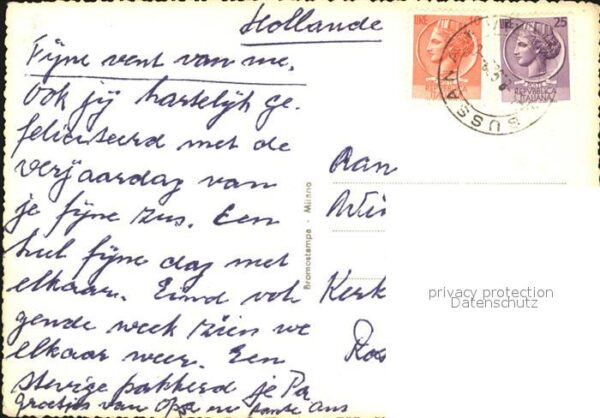 Hollande
LIRE
LIRE 25
REPVBBLICA
ITALIANA
BUSSANA
Fijne vent van me.
Ook jij hartelijk ge-
feliciteerd met de
verjaardag van
je fijne zus. Een
hele fijne dag met
elkaar. Eind vol-
gende week zien we
elkaar weer. Een
stevige pakkerd je Pa
groetjes van opa en tante ans
Bromostampa - Milano
Aan
Kerk
privacy protection
Datenschutz